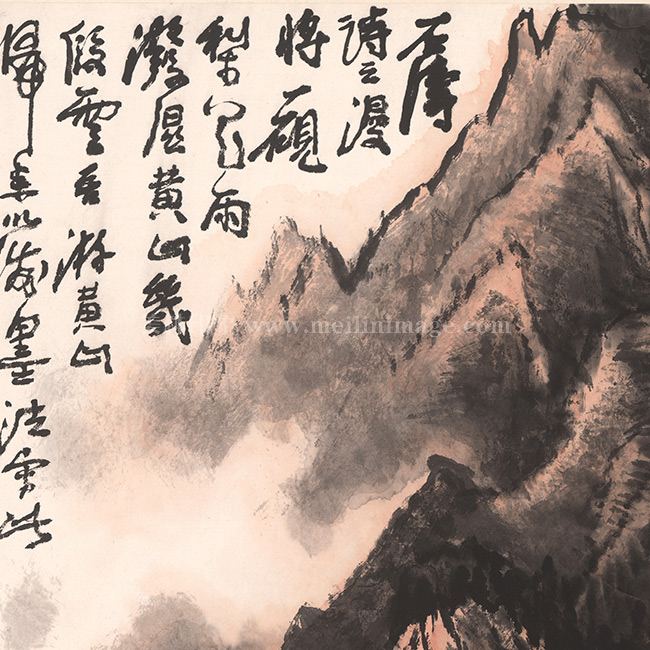 石濤
詩云漫
將一硯
梨花雨
潑濕黃山幾
段雲吾游黃山
歸來以潑墨法寫此
www.meilinimage.com